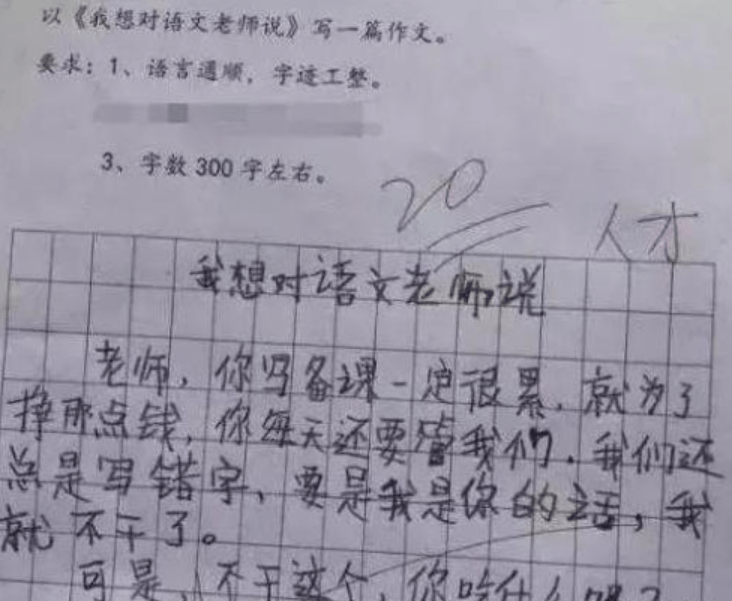 以《我想对语文老师说》写一篇作文。
要求：1、语言通顺，字迹工整。
3、字数300字左右。
20
人才
我想对语文老师说
老师，你写备课一定很累，就为了
挣那点钱，你每天还要管我们，我们还
总是写错字，要是我是你的话，我
就不干了。
可是，不干这个，你吃什么呢？